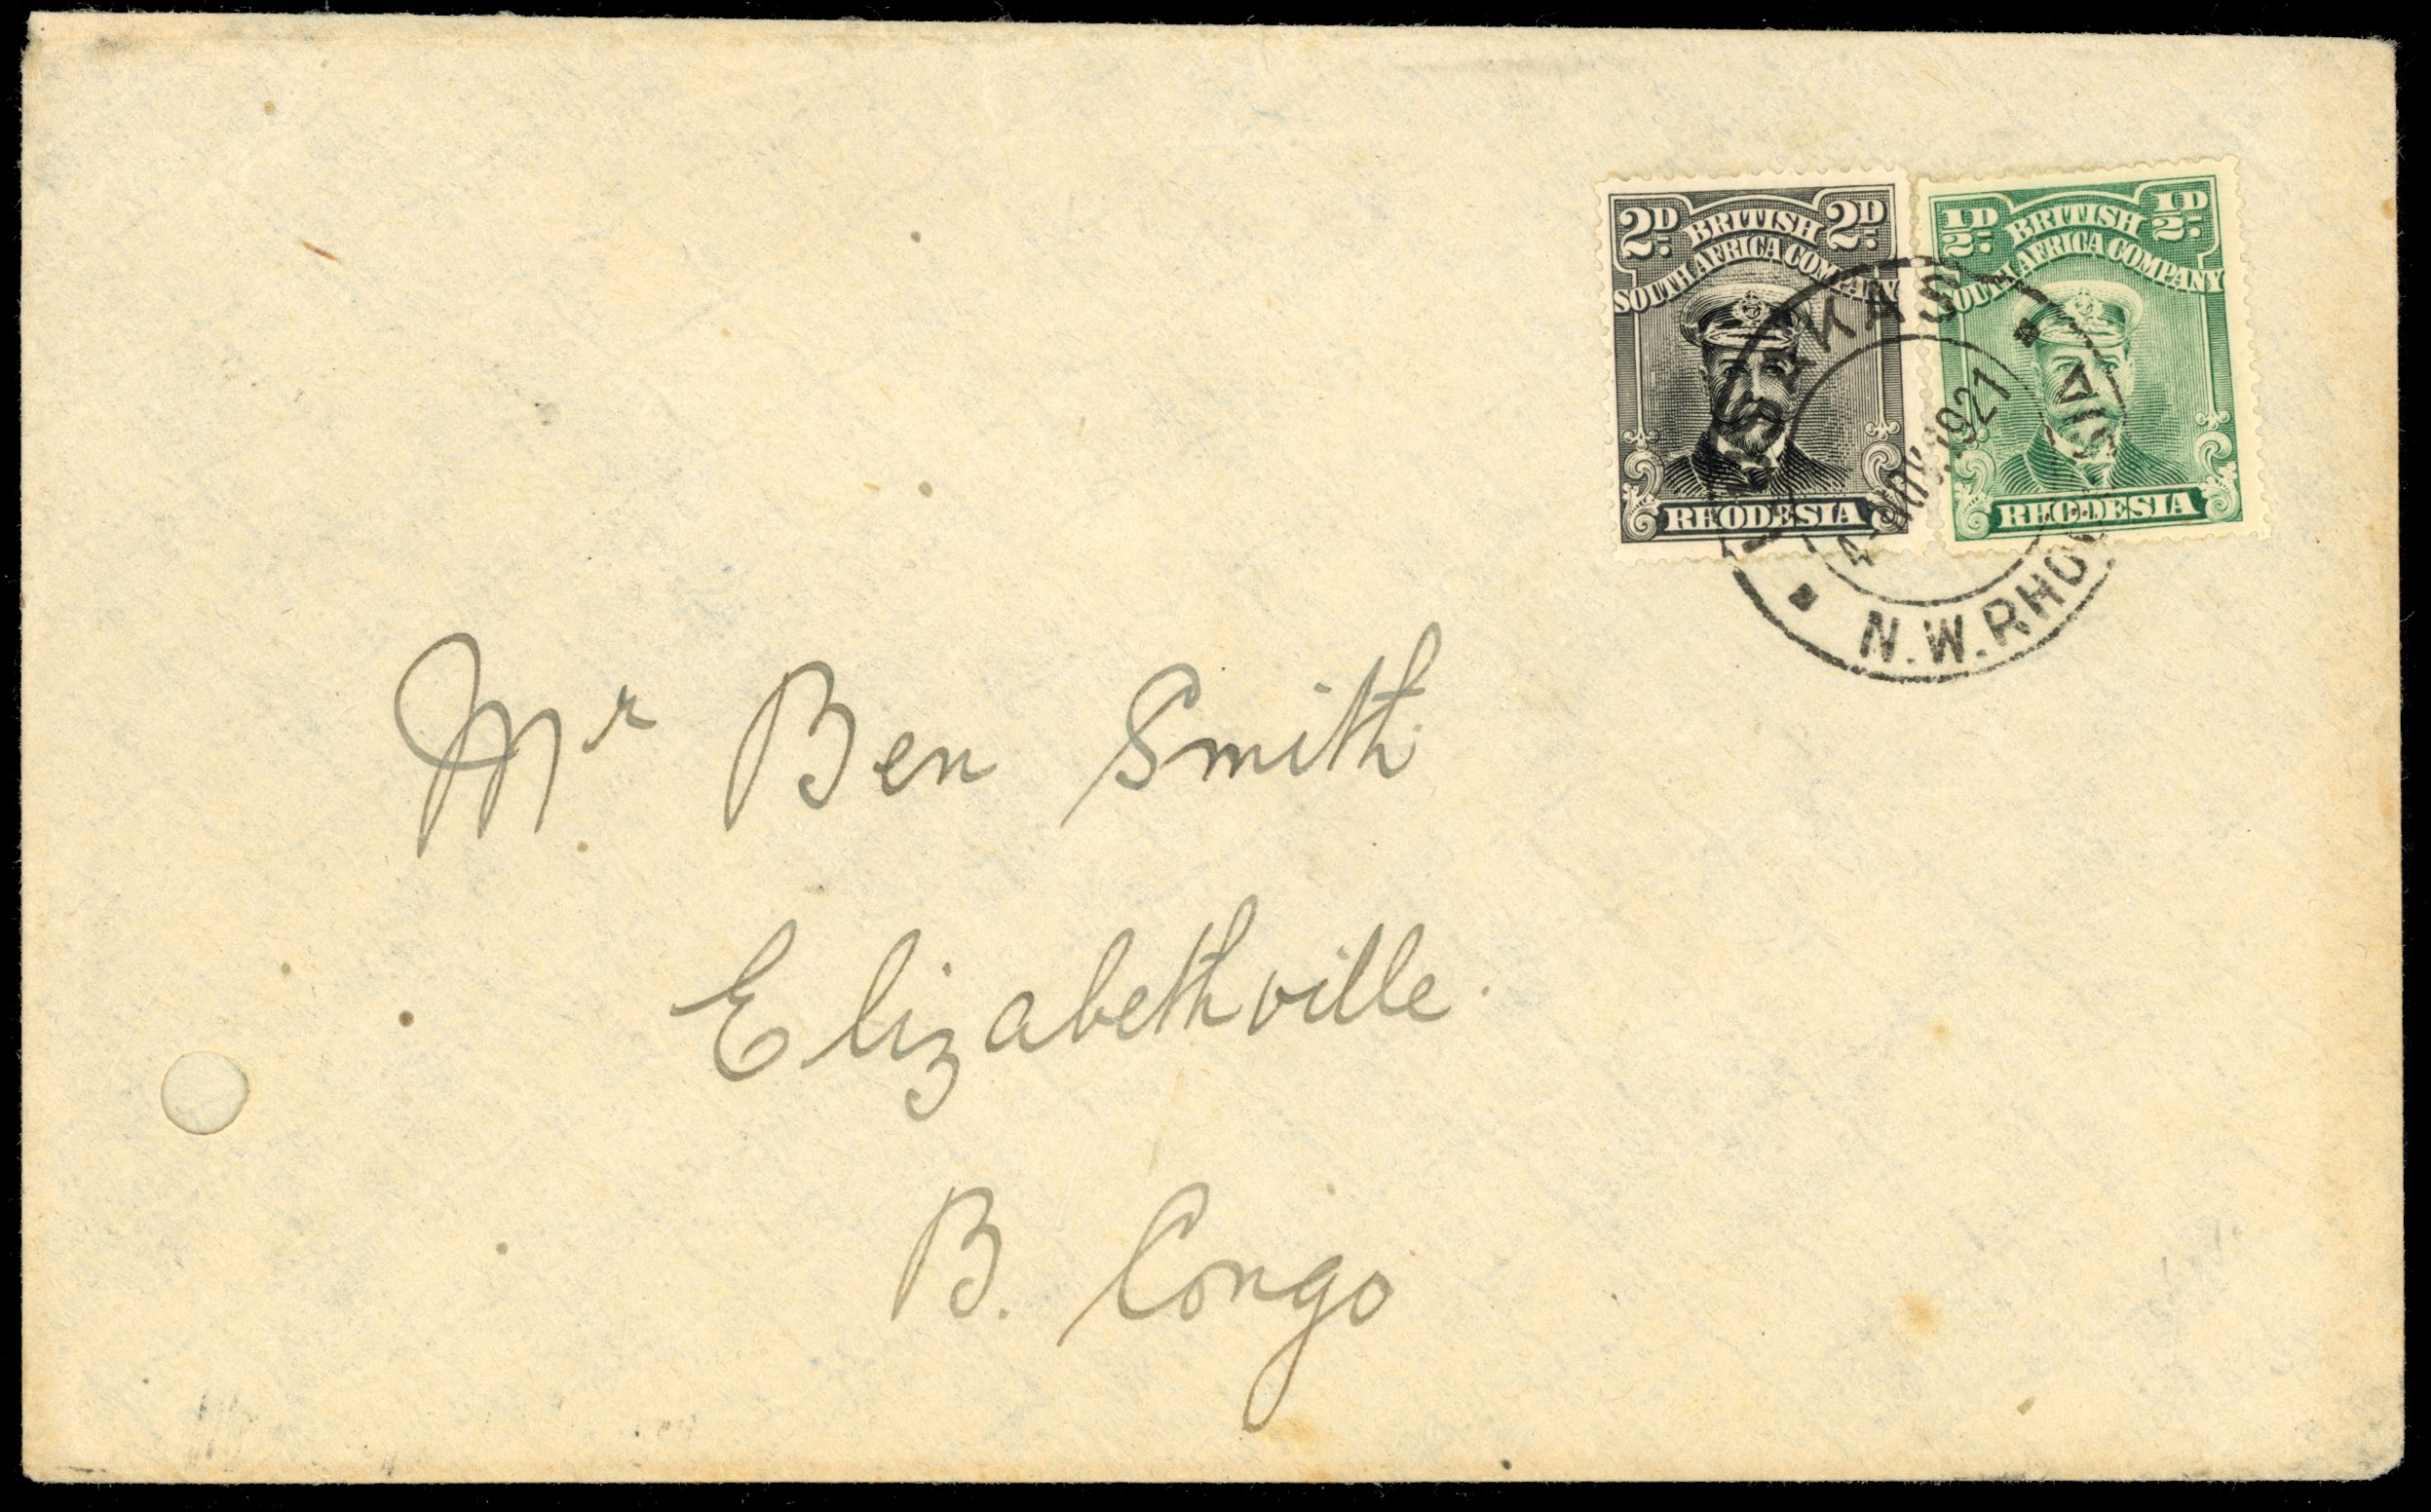 2D BRITISH 2D
SOUTH AFRICA COMPANY
RHODESIA
½D BRITISH ½D
SOUTH AFRICA COMPANY
RHODESIA
1921
N.W.RHO
Mr Ben Smith
Elizabethville.
B. Congo